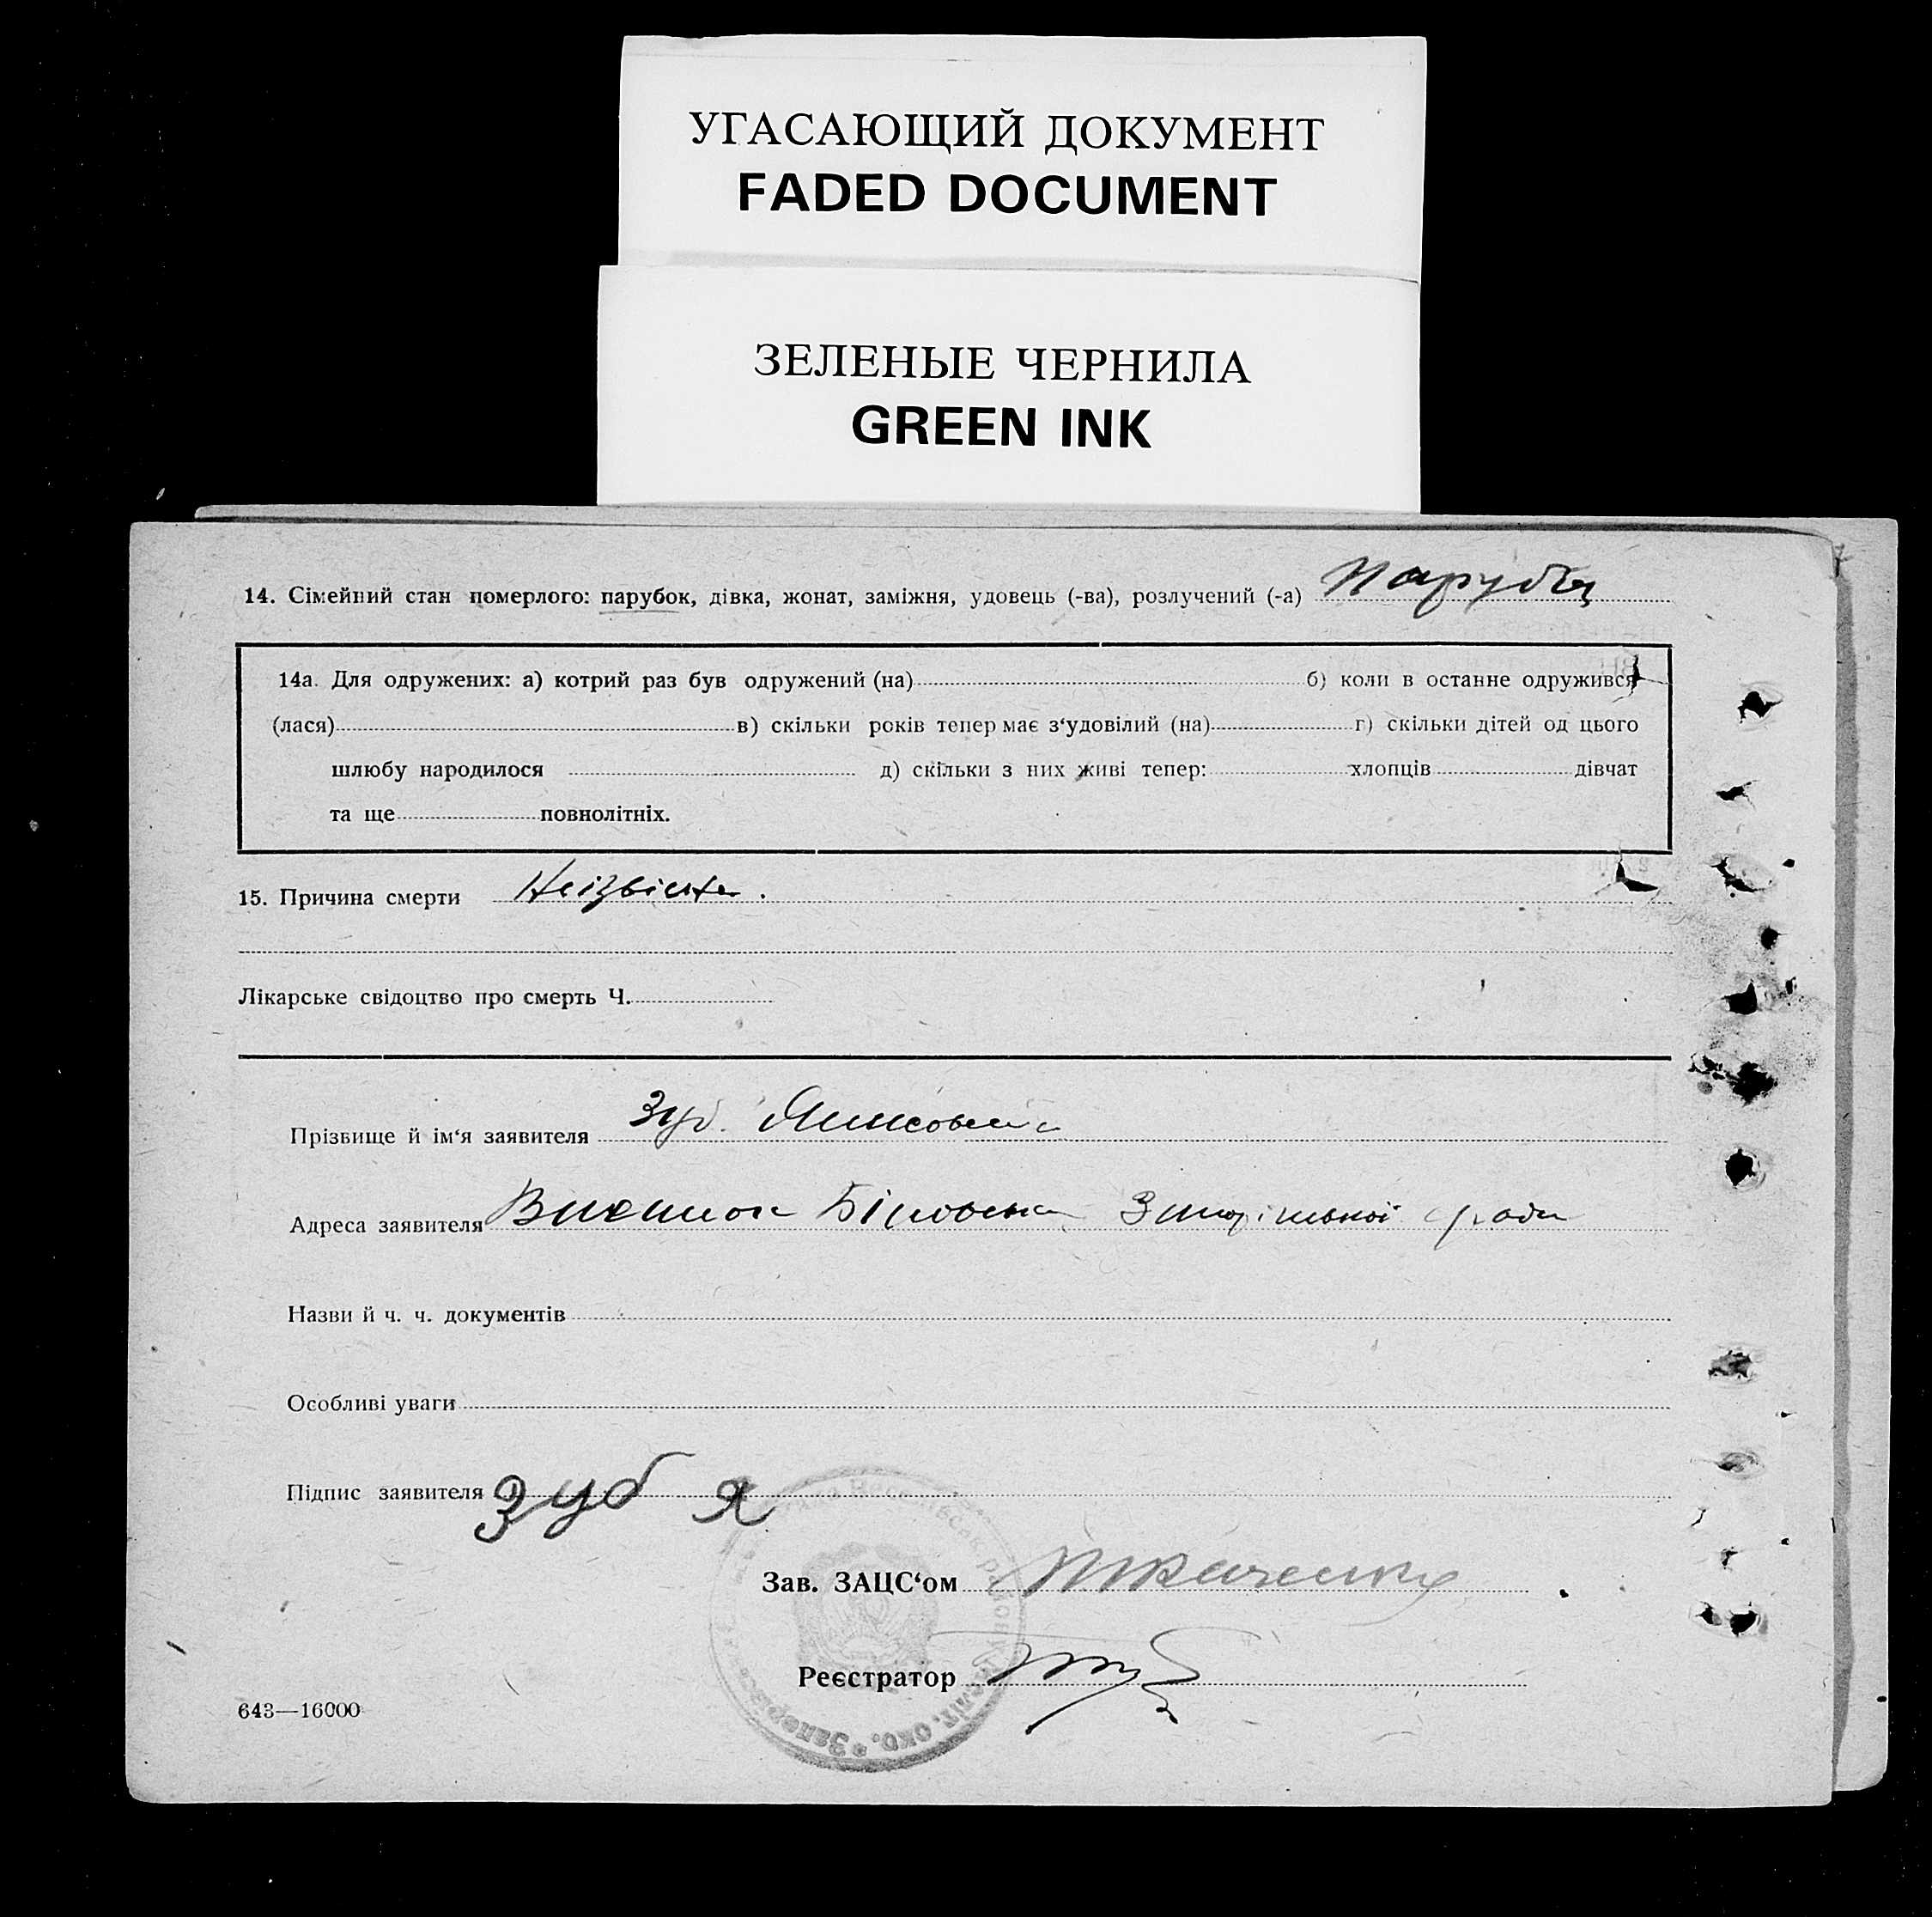 УГАСАЮЩИЙ ДОКУМЕНТ
FADED DOCUMENT
ЗЕЛЕНЫЕ ЧЕРНИЛА
GREEN INK
14. Сімейний стан померлого: парубок, дівка, жонат, заміжня, удовець (-ва), розлучений (-а)
14а. Для одружених: а) котрий раз був одружений (на) б) коли в останне одружився
(лася) в) скільки років тепер має з‘удовілий (на) г) скільки дітей од цього
шлюбу народилося д) скільки з них живі тепер: хлопців дівчат
та ще повнолітніх.
15. Причина смерти Неізвістна.
Лікарське свідоцтво про смерть Ч.
Прізвище й ім‘я заявителя Зуб
Адреса заявителя ради
Назви й ч. ч. документів
Особливі уваги
Підпис заявителя Зуб Я
Зав. ЗАЦС‘ом Ткаченко
Реєстратор
643—16000